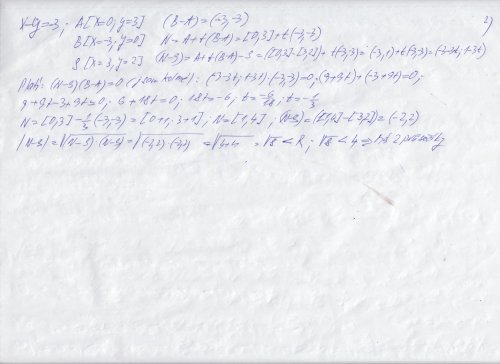 2)
x-y=-3; A[x=0; y=3] (B-A)=(-3,-3)
B[x=-3; y=0] N=A+t(B-A)=[0,3]+t(-3,-3)
S[x=3, y=2] (N-S)=A+t(B-A)-S=([0,3]-[3,2])+t(-3,-3)=(-3,1)+t(-3,-3)=(-3-3t; 1-3t)
Platí: (N-S)(B-A)=0 (jsou kolmé): (-3-3t; 1-3t)(-3,-3)=0; (9+9t)+(-3+9t)=0;
9+9t-3+9t=0; 6+18t=0; 18t=-6; t=-6/18; t=-1/3
N=[0,3]-1/3(-3,-3)=[0+1; 3+1]; N=[1,4]; (N-S)=([1,4]-[3,2])=(-2,2)
|N-S|=√(N-S)·(N-S)=√(-2,2)·(-2,2)=√4+4=√8<R; √8<4 ⇒ 2 průsečíky